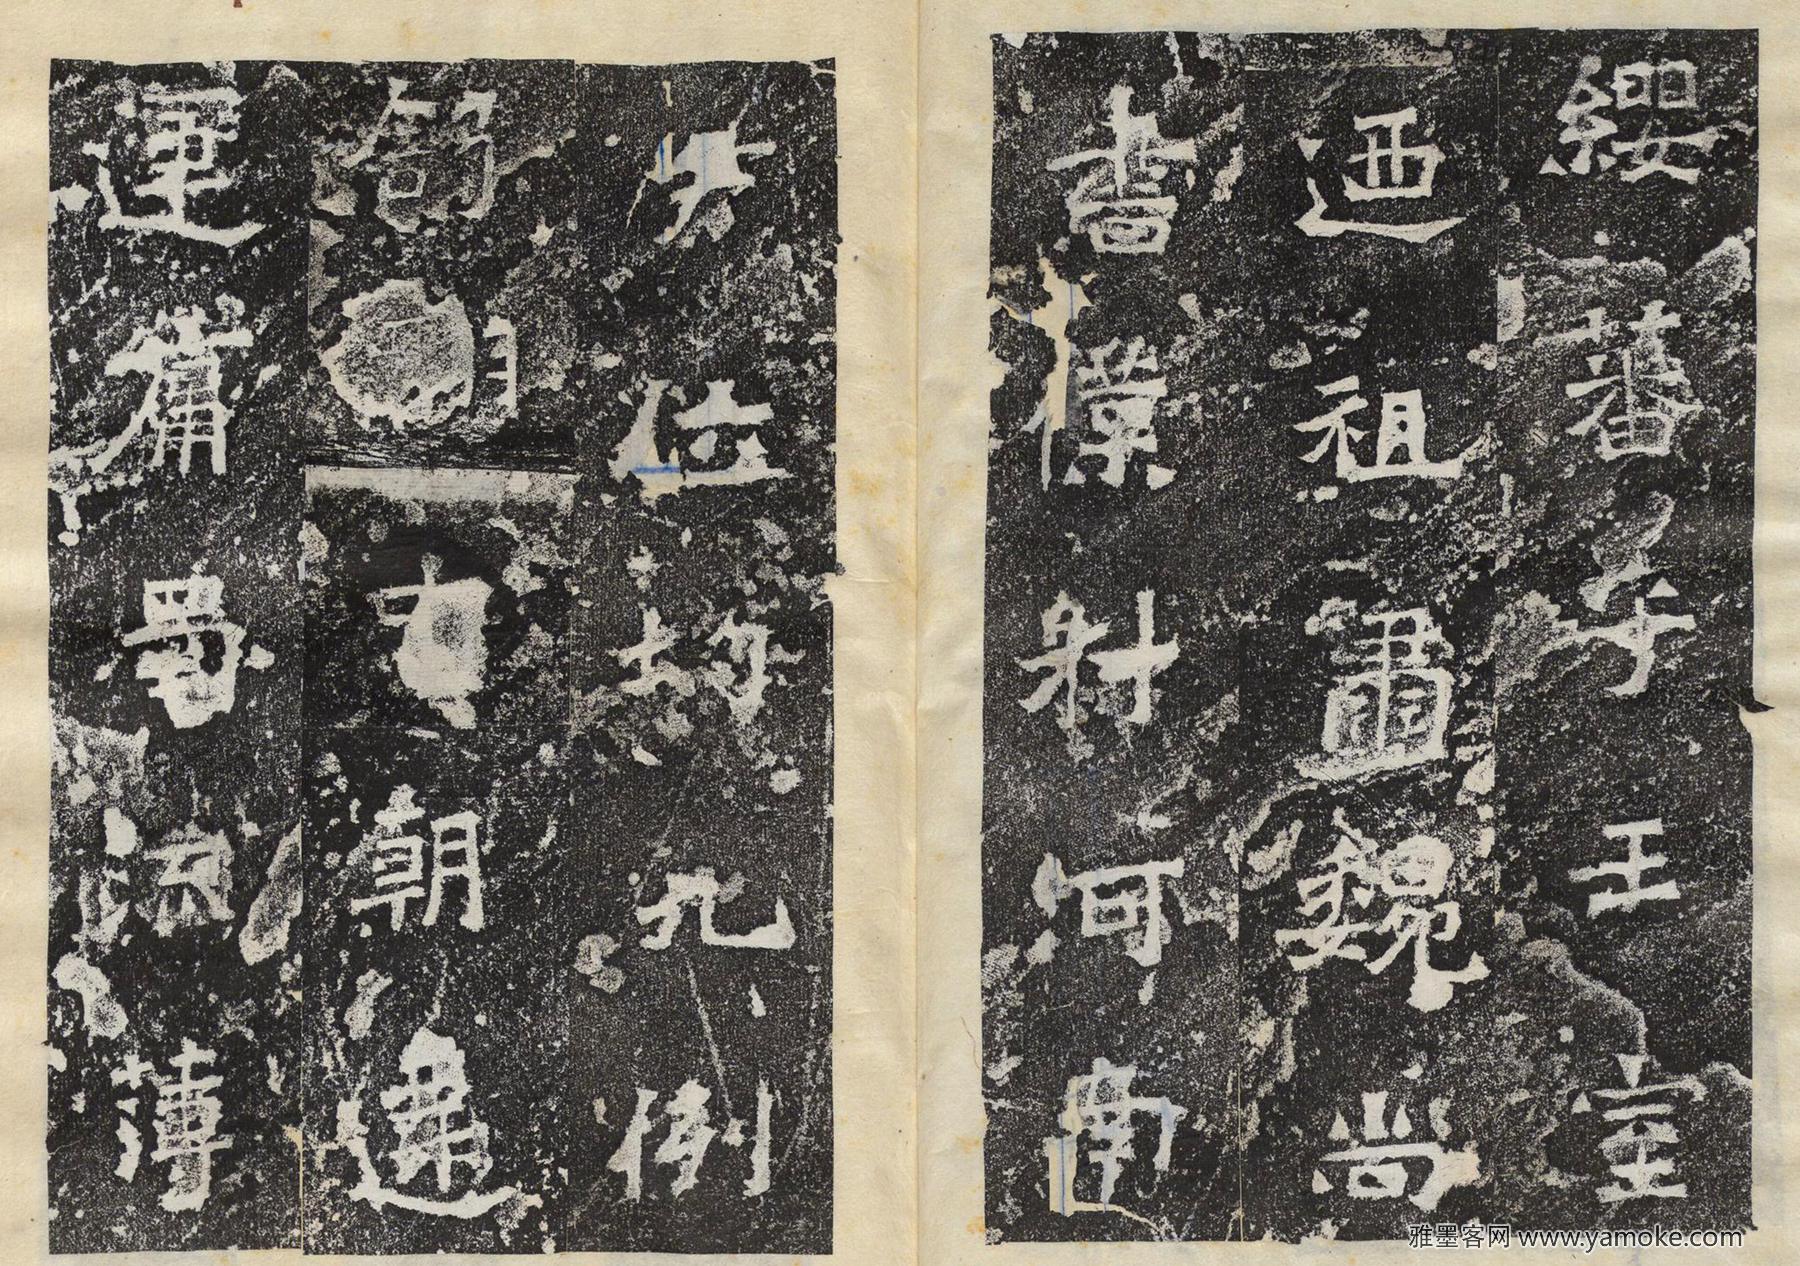 纓蕃乎王室
迺祖晝魏尚
書僕射河南
尹位均九例
朝違
運舊蜀流薄
雅墨客网 www.yamoke.com